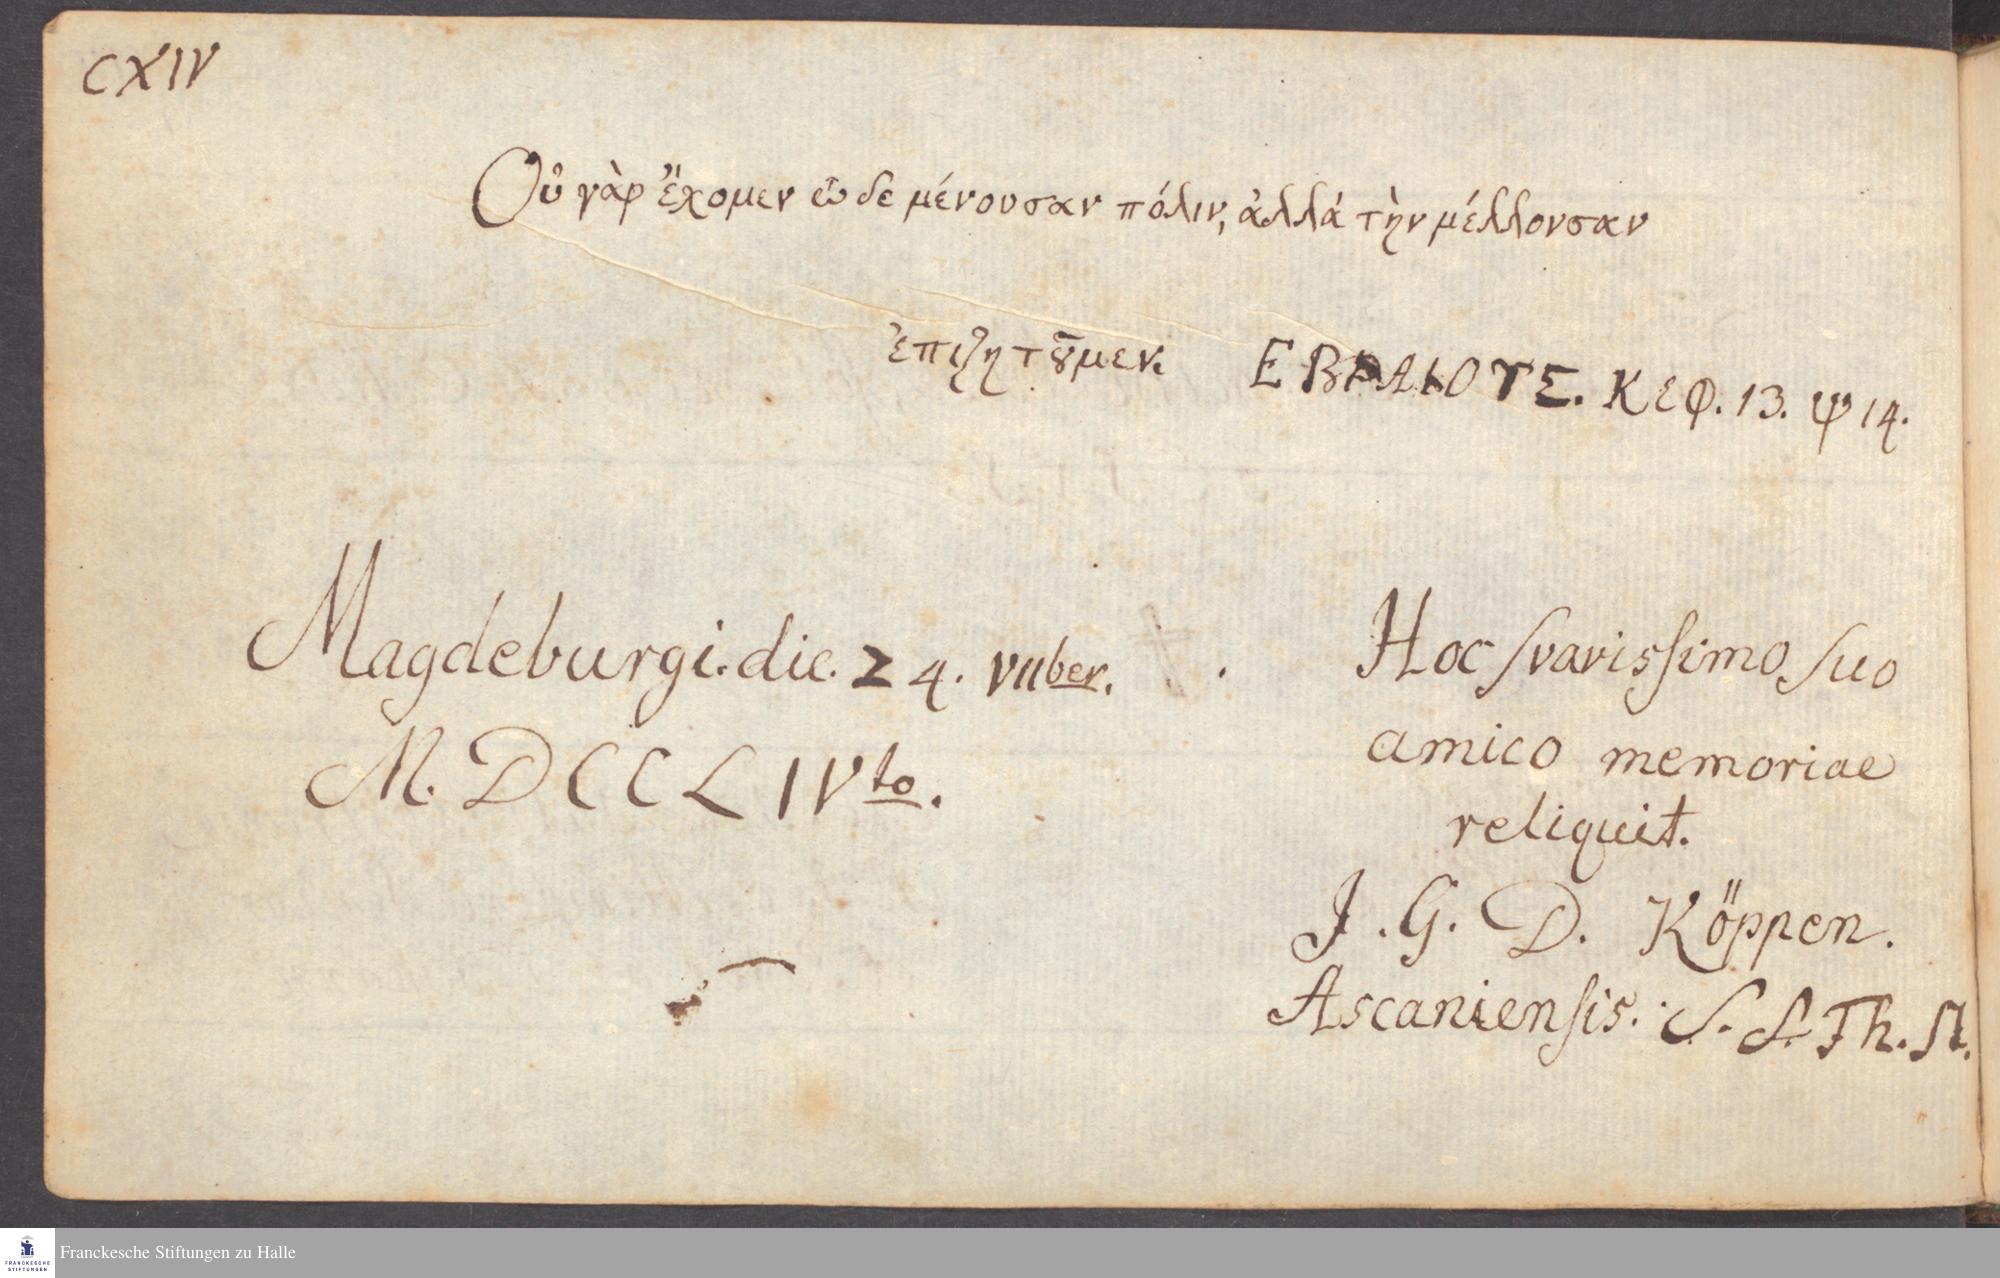 CXIV
Οὐ γὰρ ἔχομεν ὧδε μένουσαν πόλιν, ἀλλά τὴν μέλλουσαν
ἐπιζητȣ͂μεν. ΕΒΡΑΙΟΥΣ. Κεφ. 13. ψ 14.
Magdeburgi. die. 24. VIIber.
M. DCCLIVto.
Hoc svavissimo suo
amico memoriae
reliquit.
J. G. D. Köppen.
Ascaniensis. S. S. Th. St.
Franckesche Stiftungen zu Halle
FRANCKESCHE
STIFTUNGEN